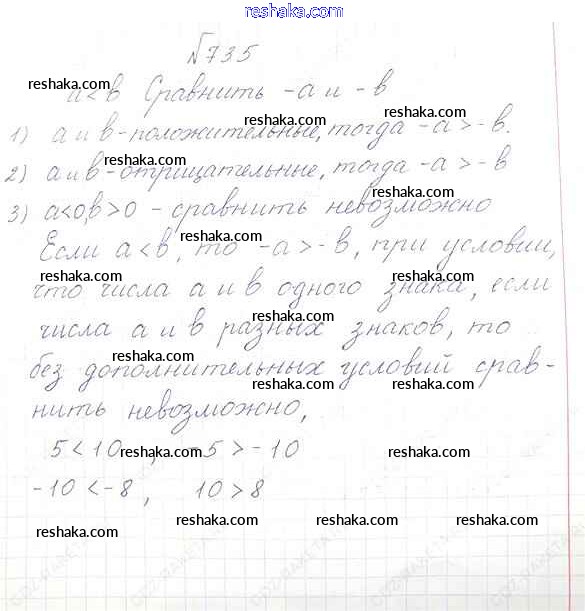 reshaka.com
№735
reshaka.com reshaka.com reshaka.com
а<в Сравнить -а и -в
reshaka.com
1) а и в-положительные, тогда -а>-в.
reshaka.com
2) а и в-отрицательные, тогда -а>-в
reshaka.com
3) а<0,в>0 - сравнить невозможно
reshaka.com
Если а<в, то -а>-в, при условии,
reshaka.com reshaka.com
что числа а и в одного знака, если
reshaka.com
числа а и в разных знаков, то
reshaka.com
без дополнительных условий срав-
reshaka.com reshaka.com
нить невозможно,
5<10, -5>-10
reshaka.com reshaka.com
-10<-8, 10>8
reshaka.com reshaka.com reshaka.com
reshaka.com